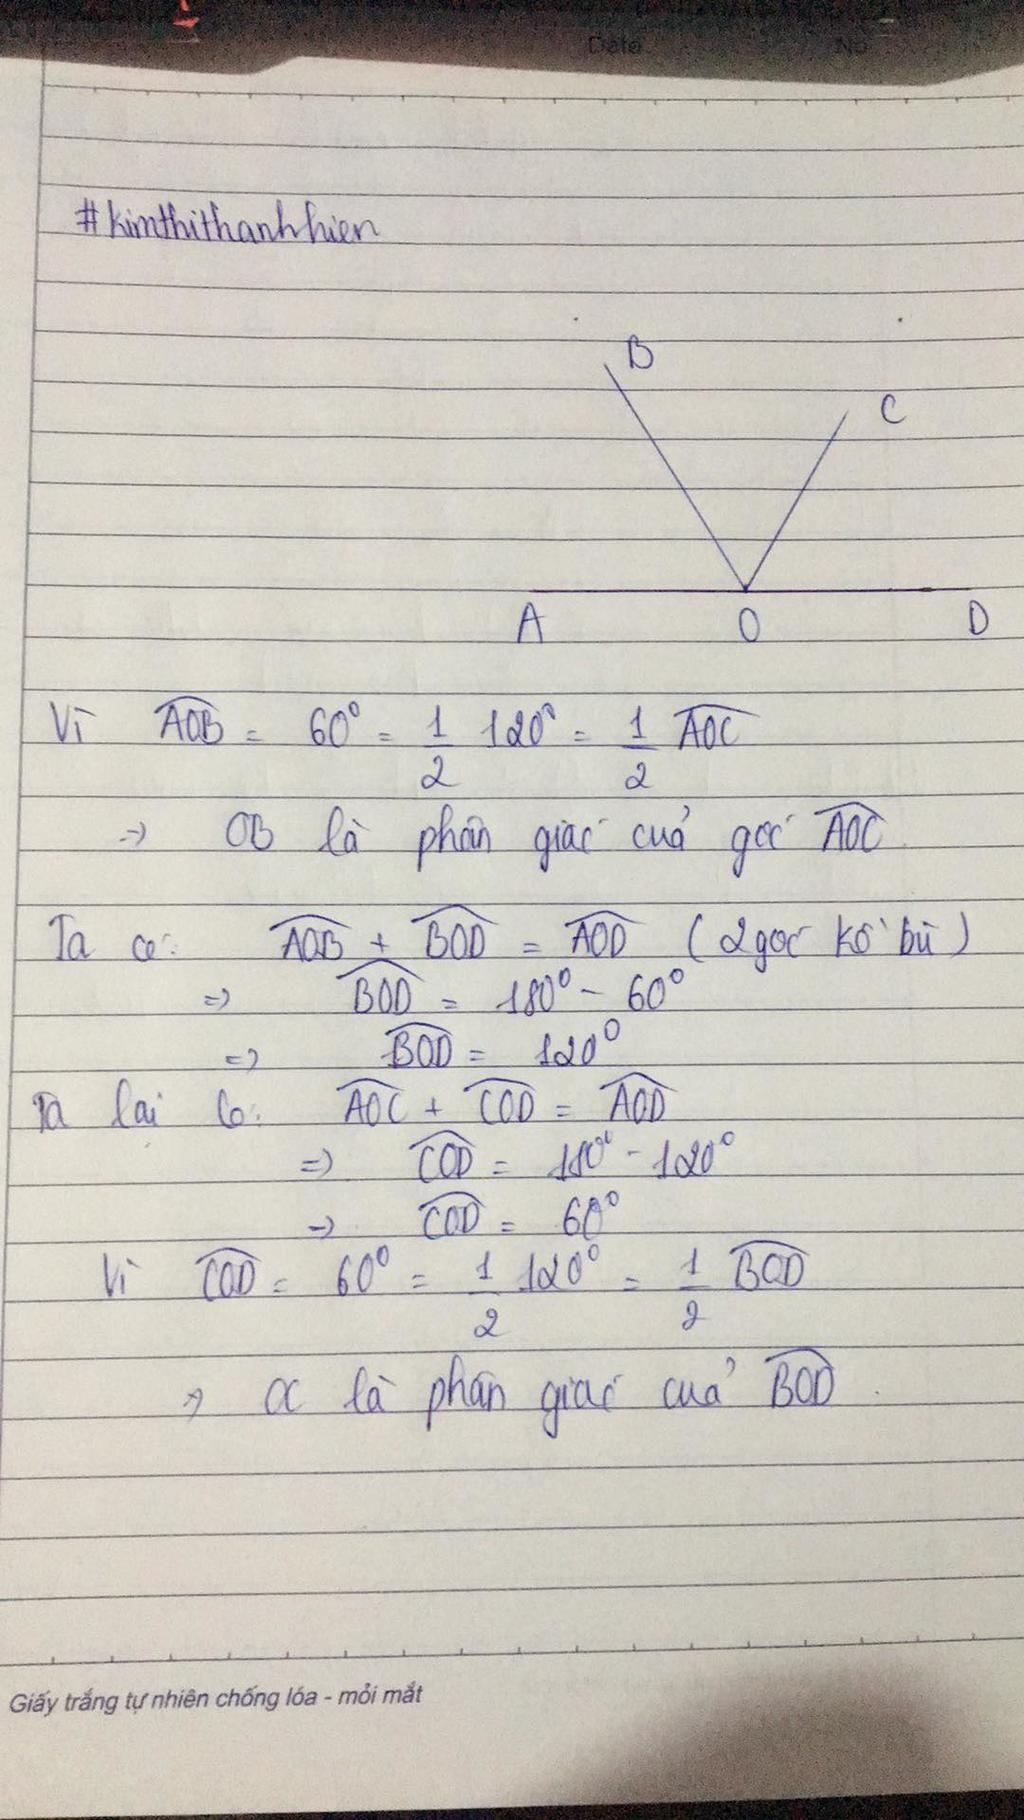 Date No
#kimthithanhhien
B
C
A O D
Vì AOB = 60° = 1/2 120° = 1/2 AOC
=> OB là phân giác của góc AOC
Ta có: AOB + BOD = AOD (2 góc kề bù)
=> BOD = 180° - 60°
=> BOD = 120°
Ta lại có: AOC + COD = AOD
=> COD = 180° - 120°
=> COD = 60°
Vì COD = 60° = 1/2 120° = 1/2 BOD
=> OC là phân giác của BOD.
Giấy trắng tự nhiên chống lóa - mỏi mắt